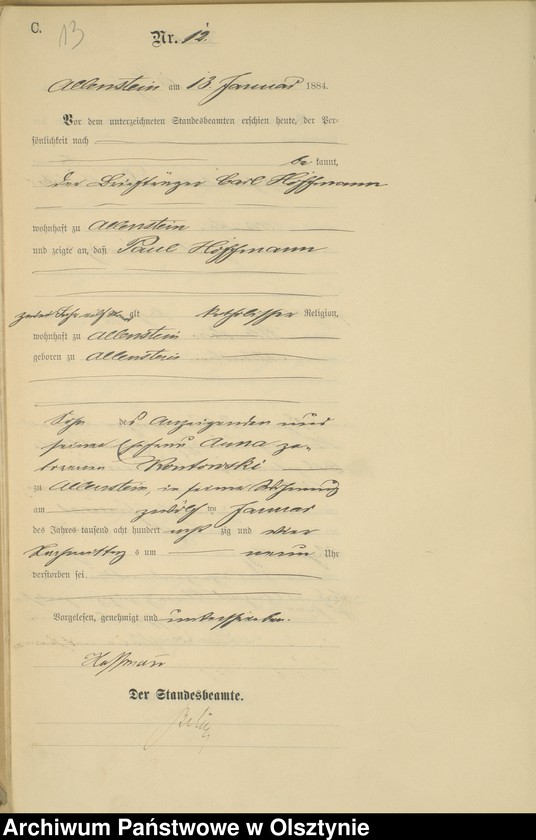 C.
13
Nr. 12.
Allenstein am 13 Januar 1884.
Vor dem unterzeichneten Standesbeamten erschien heute, der Per-
sönlichkeit nach
be kannt,
der Briefträger Carl Höffmann
wohnhaft zu Allenstein
und zeigte an, daß Paul Höffmann
zwei Jahr alt
katholischer Religion,
wohnhaft zu Allenstein
geboren zu Allenstein
Sohn des Anzeigenden und
seiner Ehefrau Anna ge-
borenen
zu Allenstein, in seiner Wohnung
am zwölf ten Januar
des Jahres tausend acht hundert acht zig und vier
Nachmittag s um neun Uhr
verstorben sei.
Vorgelesen, genehmigt und unterschrieben.
Der Standesbeamte.
Archiwum Państwowe w Olsztynie